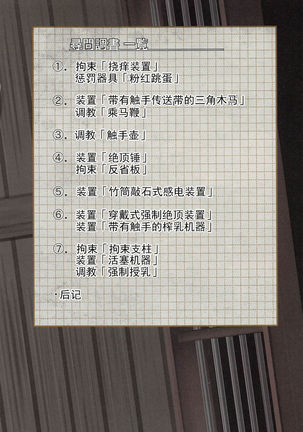 尋問調書 一覧
①．拘束「挠痒装置」
惩罚器具「粉红跳蛋」
②．装置「带有触手传送带的三角木马」
调教「乘马鞭」
③．调教「触手壶」
④．装置「绝顶锤」
拘束「反省板」
⑤．装置「竹筒敲石式感电装置」
⑥．装置「穿戴式强制绝顶装置」
装置「带有触手的榨乳机器」
⑦．拘束「拘束支柱」
装置「活塞机器」
调教「强制授乳」
·后记